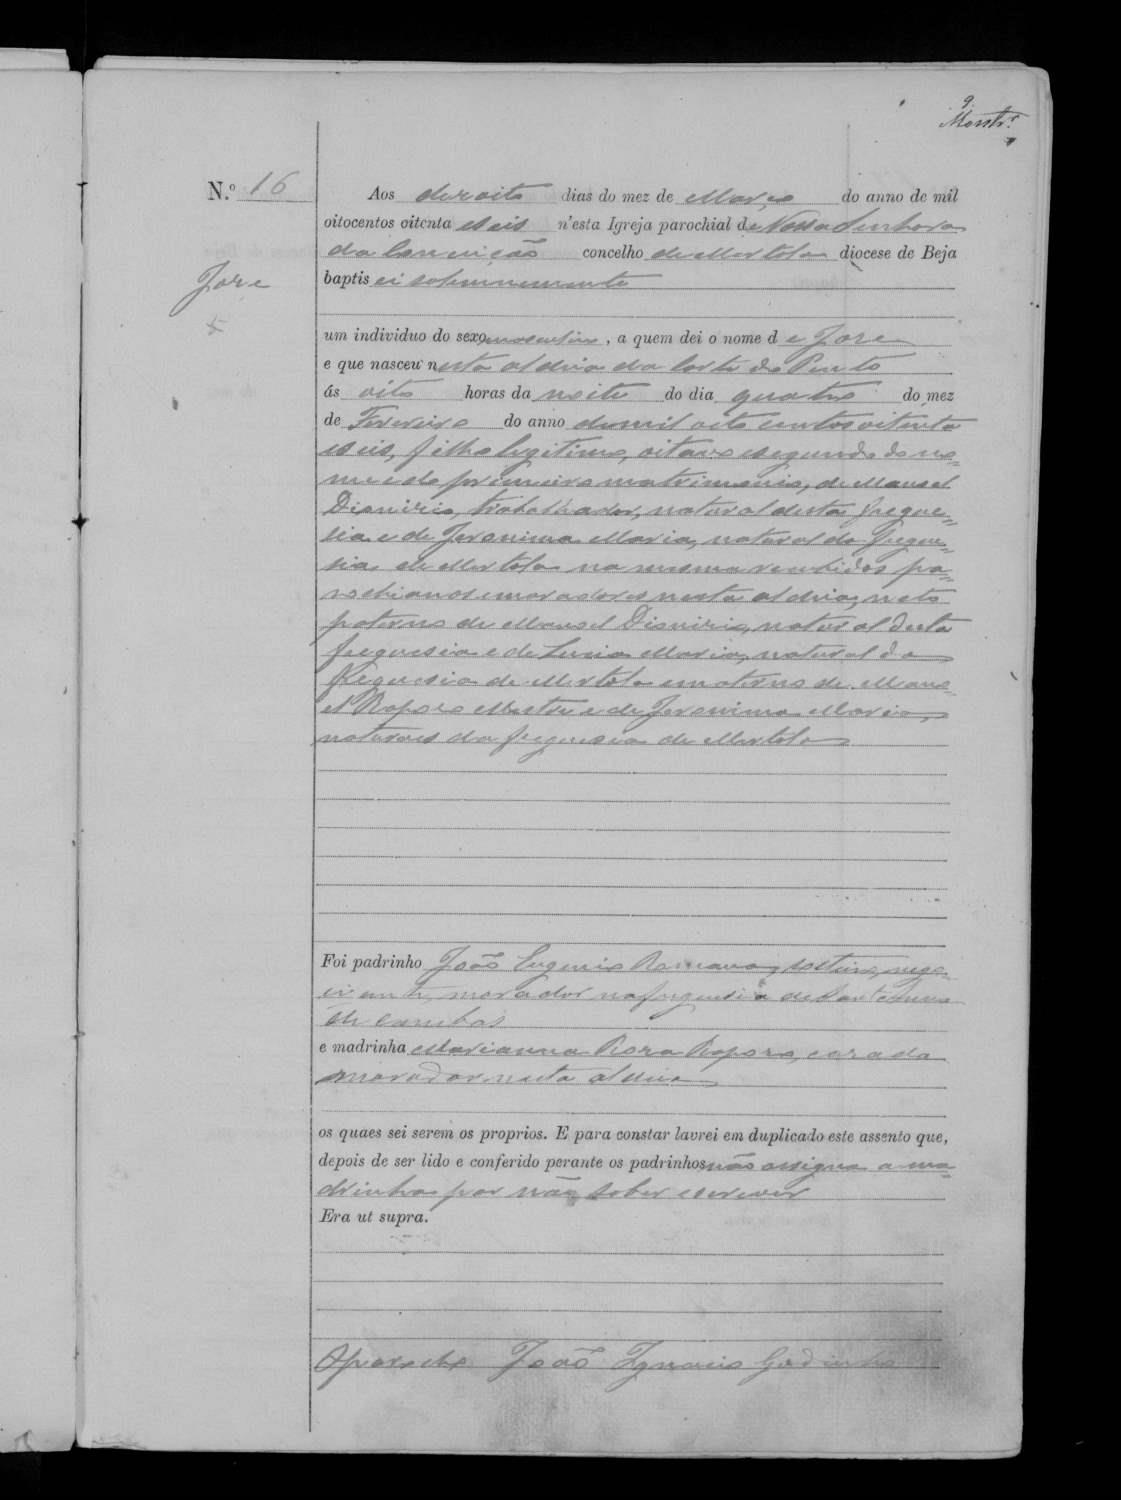 9
N.º 16
Aos dezoito dias do mez de Março do anno de mil
oitocentos oitenta e seis n'esta Igreja parochial de Nossa Senhora
da Conceição concelho de Mertola diocese de Beja
José
baptisei solemnemente
um individuo do sexo masculino, a quem dei o nome de José
e que nasceu nesta aldeia da Corte do Pinto
ás oito horas da noite do dia quatro do mez
de Fevereiro do anno de mil oito centos oitenta
e seis, filho legitimo, oitavo e segundo do no=
me e do primeiro matrimonio, de Manoel
Dionizio, trabalhador, natural desta fregue=
sia e de Jeronima Maria, natural da fregue=
sia de Mertola na mesma recebidos pa=
rochianos e moradores nesta aldeia, neto
paterno de Manoel Dionizio, natural desta
freguesia e de Luzia Maria, natural da
freguesia de Mertola e materno de Mano=
el Raposo Mestre e de Jeronima Maria,
naturaes da freguesia de Mertola
Foi padrinho João Eugenio Romana, solteiro, nego=
ciante, morador na freguesia de Sant'Anna
de Cambas
e madrinha Marianna Roza Raposo, casada
morador nesta aldeia
os quaes sei serem os proprios. E para constar lavrei em duplicado este assento que,
depois de ser lido e conferido perante os padrinhos não assigna a ma=
drinha por não saber escrever
Era ut supra.
O parocho João Ignacio Godinho